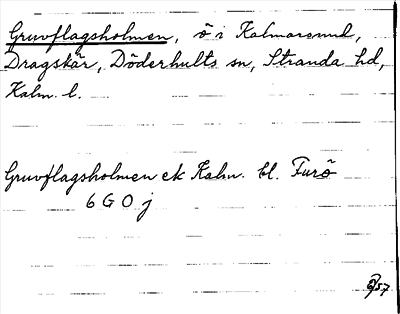 Gruvflagsholmen, ö i Kalmarsund,
Dragskär, Döderhults sn, Stranda hd,
Kalm. l.
Gruvflagsholmen ek Kalm. bl. Furö
6 G 0 j
/57